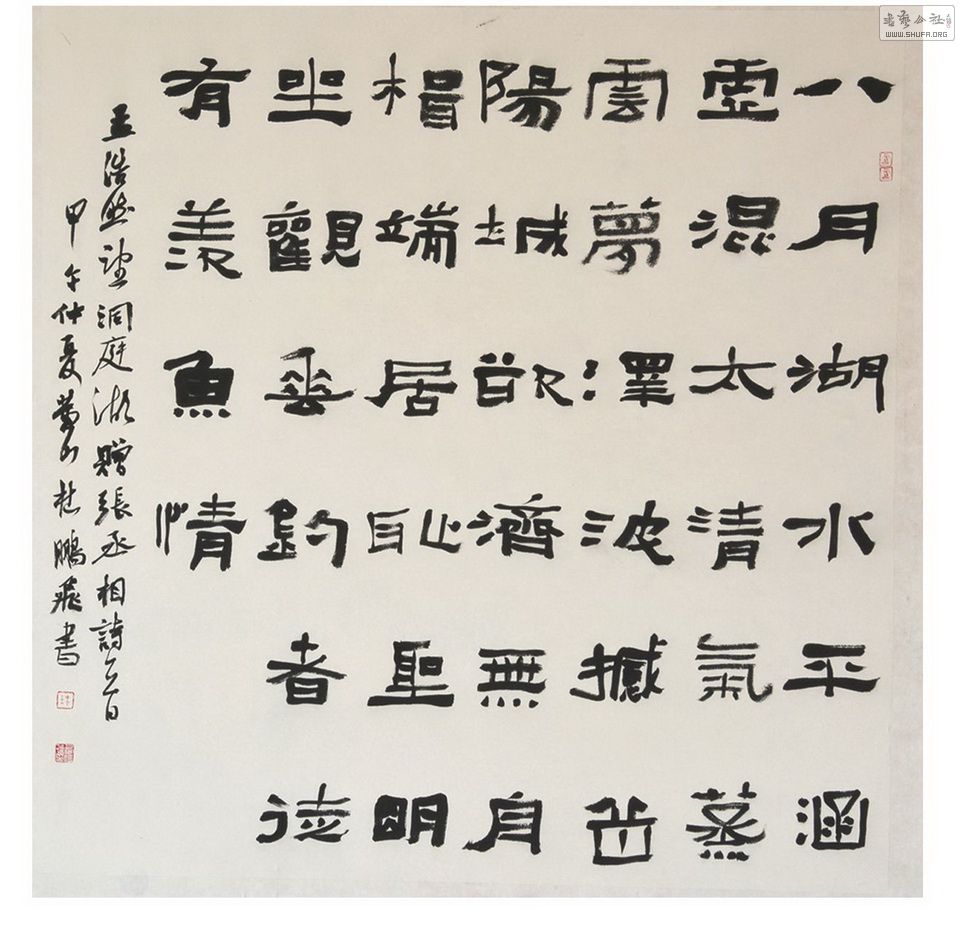 八月湖水平涵
虛混太清氣蒸
雲夢澤波撼岳
陽城欲濟無舟
楫端居耻聖明
坐觀垂釣者徒
有羨魚情
孟浩然望洞庭湖贈張丞相詩一首
甲午仲夏杜鵬飛書
書藝公社
WWW.SHUFA.ORG